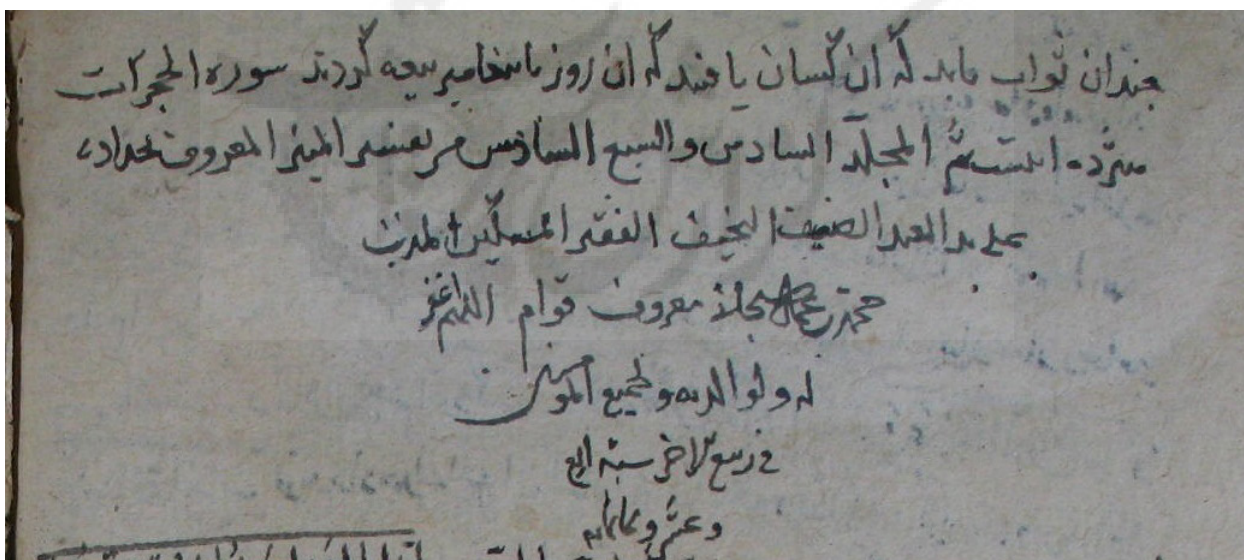 چندان ثواب یابد که ان کسان یافتند که ان روز با پیغامبر بیعه کردند سوره الحجرات
هژده ایتست تم المجلد السادس والسبع السادس من تفسیر المنیر المعروف بحدادی
علی ید العبد الضعیف النحیف الفقیر المسکین المذنب
محمد بن معروف قوام اللهم اغفر
له ولوالدیه ولجمیع المومنین
فی ربیع الاخر سنة اربع
وعشر وثمانمایه